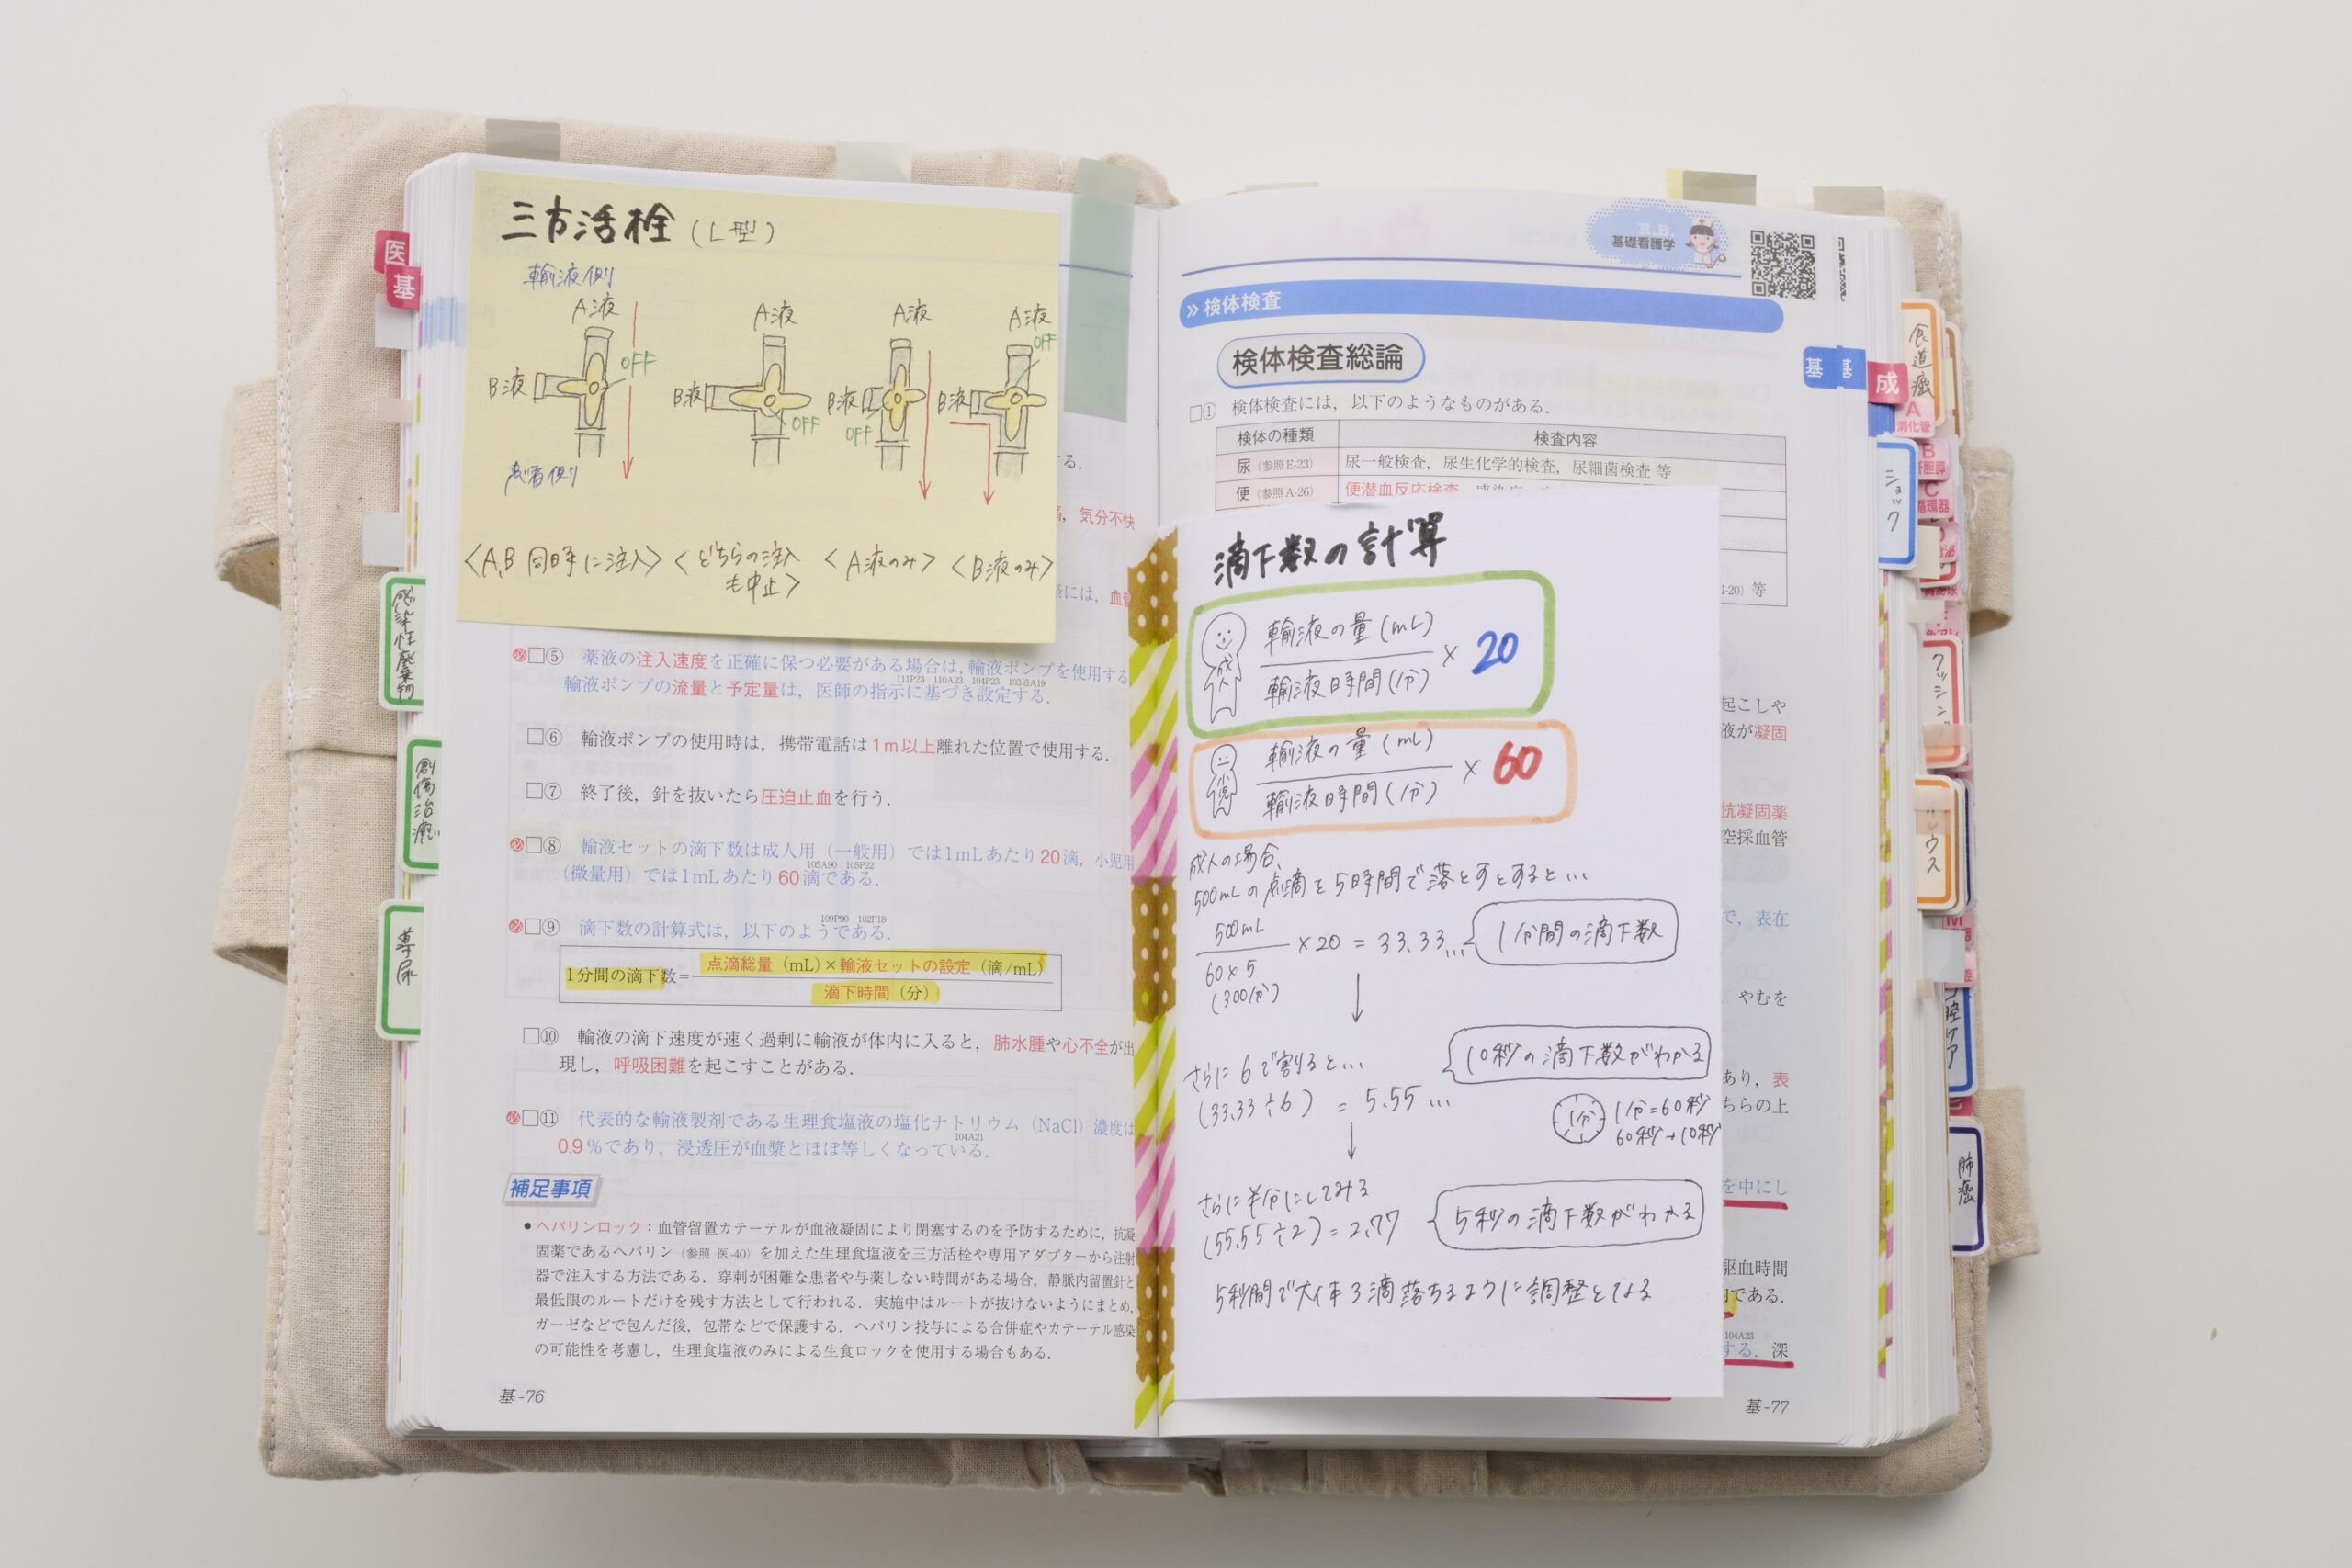 三方活栓(L型)
輸液側
A液
A液
A液
A液
OFF
OFF
B液
B液
B液
B液
OFF
OFF
患者側
〈A,B 同時に注入〉
〈どちらの注入
も中止〉
〈A液のみ〉
〈B液のみ〉
医
基
感染性廃棄物
創傷治癒
導尿
する.
痛, 気分不快
には, 血管
必□⑤ 薬液の注入速度を正確に保つ必要がある場合は, 輸液ポンプを使用する
111P23 110A23 104P23 103追A19
輸液ポンプの流量と予定量は, 医師の指示に基づき設定する.
□⑥ 輸液ポンプの使用時は, 携帯電話は1m以上離れた位置で使用する.
□⑦ 終了後, 針を抜いたら圧迫止血を行う.
必□⑧ 輸液セットの滴下数は成人用(一般用)では1mLあたり20滴, 小児用
105A90 105P22
(微量用)では1mLあたり60滴である.
109P90 102P18
必□⑨ 滴下数の計算式は, 以下のようである.
1分間の滴下数=
点滴総量(mL)×輸液セットの設定(滴/mL)
滴下時間(分)
□⑩ 輸液の滴下速度が速く過剰に輸液が体内に入ると, 肺水腫や心不全が出
現し, 呼吸困難を起こすことがある.
必□⑪ 代表的な輸液製剤である生理食塩液の塩化ナトリウム(NaCl)濃度は
104A21
0.9%であり, 浸透圧が血漿とほぼ等しくなっている.
補足事項
●ヘパリンロック:血管留置カテーテルが血液凝固により閉塞するのを予防するために, 抗凝
固薬であるヘパリン(参照 医-40)を加えた生理食塩液を三方活栓や専用アダプターから注射
器で注入する方法である. 穿刺が困難な患者や与薬しない時間がある場合, 静脈内留置針と
最低限のルートだけを残す方法として行われる. 実施中はルートが抜けないようにまとめ,
ガーゼなどで包んだ後, 包帯などで保護する. ヘパリン投与による合併症やカテーテル感染
の可能性を考慮し, 生理食塩液のみによる生食ロックを使用する場合もある.
基-76
R.B.
基礎看護学
≫検体検査
検体検査総論
□① 検体検査には, 以下のようなものがある.
検体の種類 検査内容
尿(参照E-23) 尿一般検査, 尿生化学的検査, 尿細菌検査 等
便(参照A-26) 便潜血反応検査
滴下数の計算
成人
輸液の量(mL)
輸液時間(分)
× 20
小児
輸液の量(mL)
輸液時間(分)
× 60
成人の場合、
500mLの点滴を5時間で落とすとすると…
500mL
60×5
(300分)
×20 = 33.33…
1分間の滴下数
↓
さらに6で割ると…
(33.33÷6) = 5.55…
10秒の滴下数がわかる
1分
1分=60秒
60秒→10秒
↓
さらに半分にしてみる
(55.55÷2)=2.77
5秒の滴下数がわかる
5秒間で大体3滴落ちるように調整となる
等
起こしや
液が凝固
抗凝固薬
空採血管
で, 表在
やむを
あり, 表
ちらの上
を中にし
駆血時間
である.
104A23
する. 深
基-77
基
基
成
食道癌
A
消化管
B
肝胆膵
C
循環器
ショック
肺癌